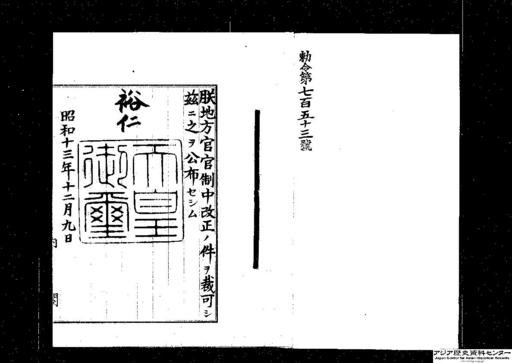 勅令第七百五十三號
朕地方官官制中改正ノ件ヲ裁可シ
玆ニ之ヲ公布セシム
裕仁
天皇御璽
昭和十三年十二月九日
内閣
アジア歴史資料センター
Japan Center for Asian Historical Records